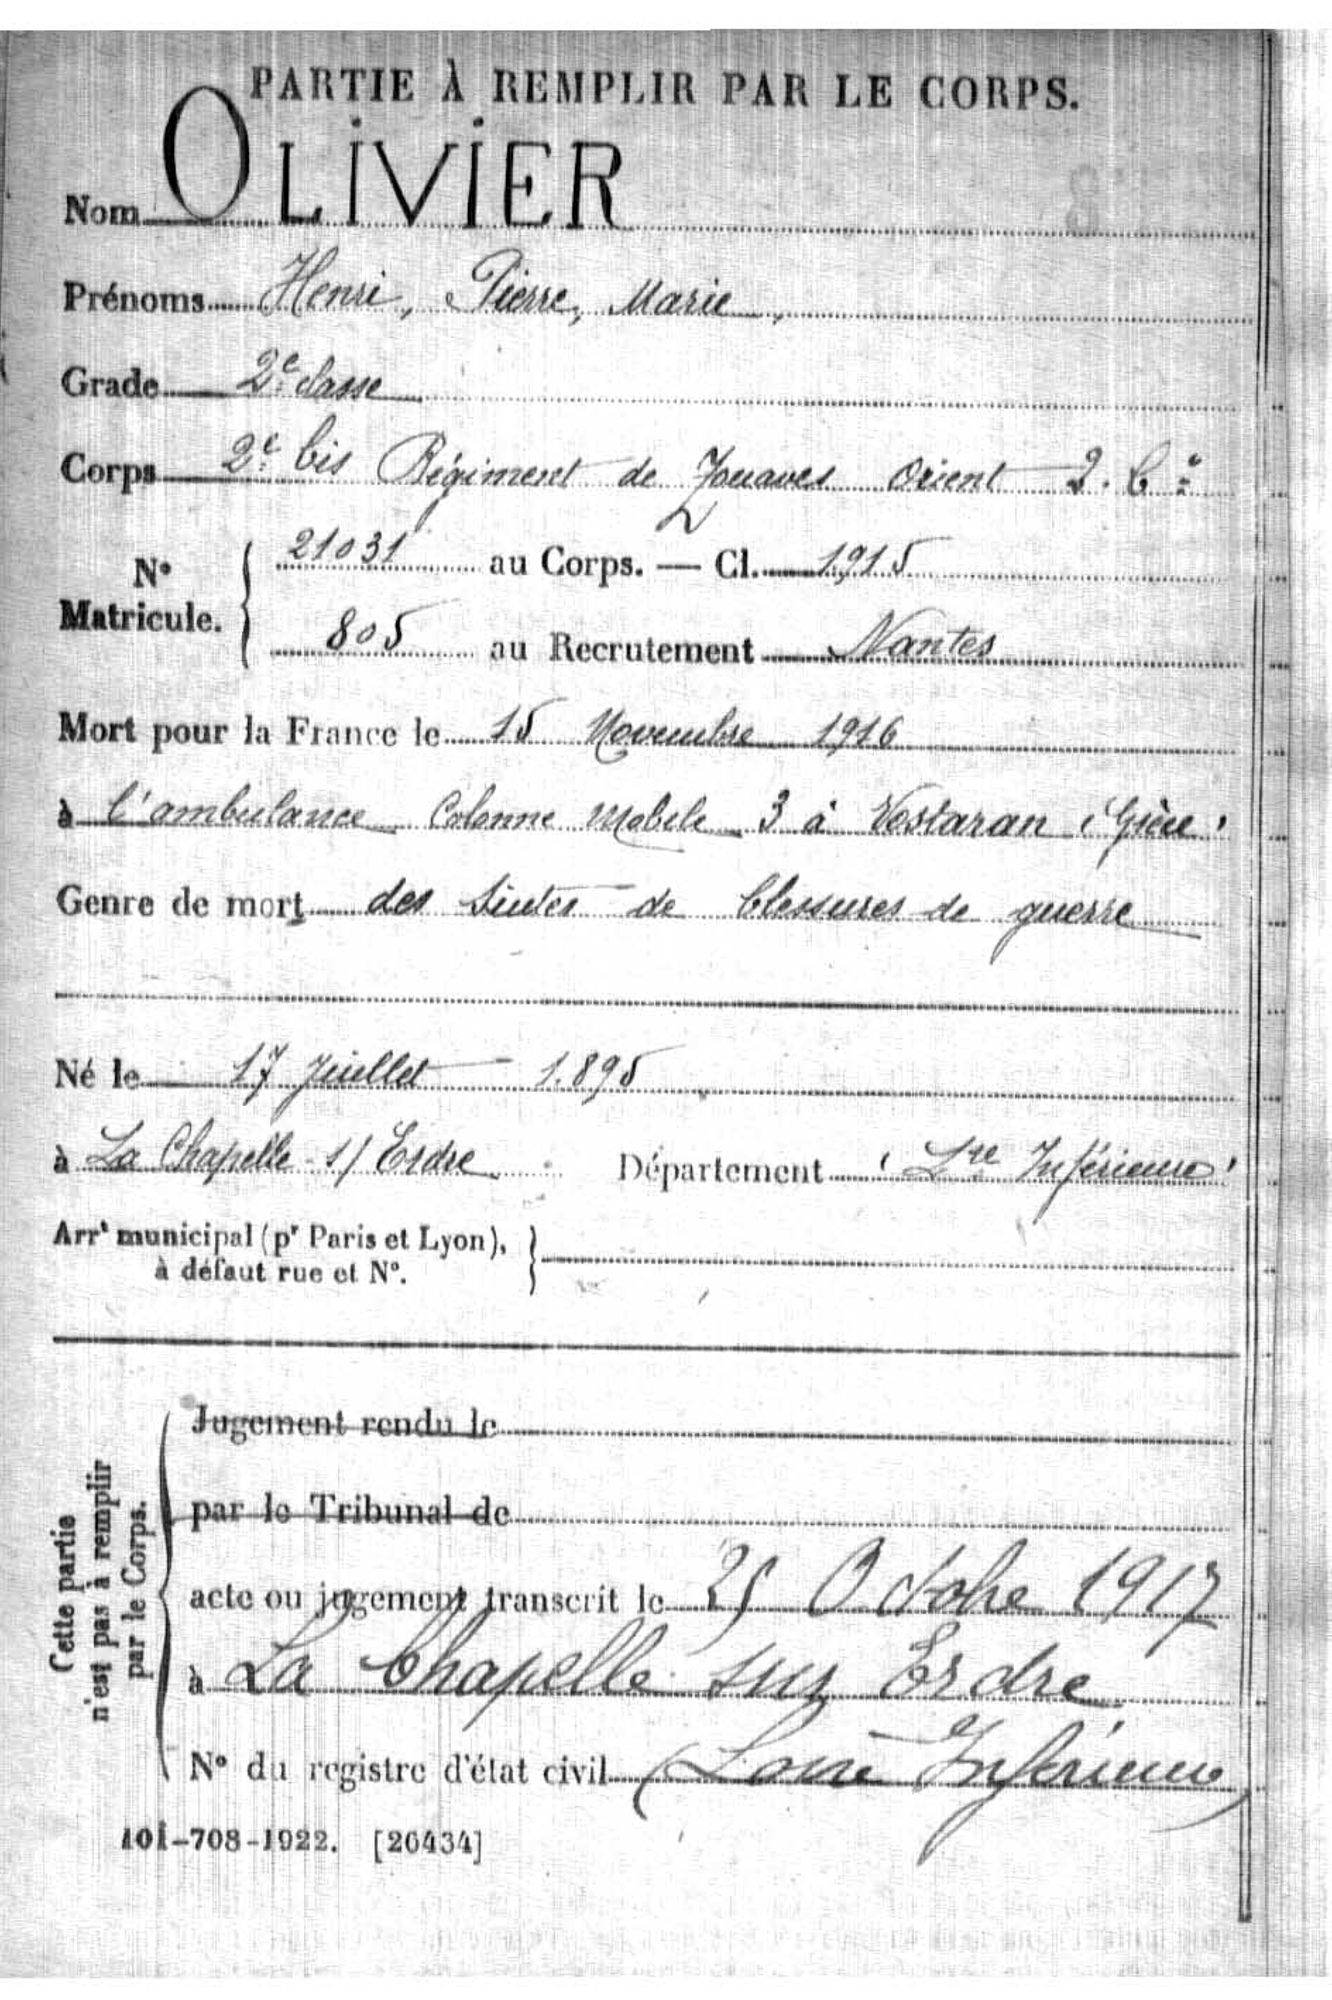 PARTIE À REMPLIR PAR LE CORPS.
Nom OLIVIER
Prénoms Henri, Pierre, Marie,
Grade 2e classe
Corps 2e bis Régiment de Zouaves Orient
N° Matricule. 21031 au Corps. — Cl. 1915
805 au Recrutement Nantes
Mort pour la France le 15 Novembre 1916
à l'ambulance Colonne Mobile 3 à Vostaran (Grèce)
Genre de mort des suites de blessures de guerre
Né le 17 Juillet 1895
à La Chapelle s/ Erdre Département (Lre Inférieure)
Arrt municipal (pr Paris et Lyon),
à défaut rue et N°.
Cette partie
n'est pas à remplir
par le Corps.
Jugement rendu le
par le Tribunal de
acte ou jugement transcrit le 25 Octobre 1917
à La Chapelle sur Erdre
N° du registre d'état civil (Loire Inférieure)
101-708-1922. [26434]